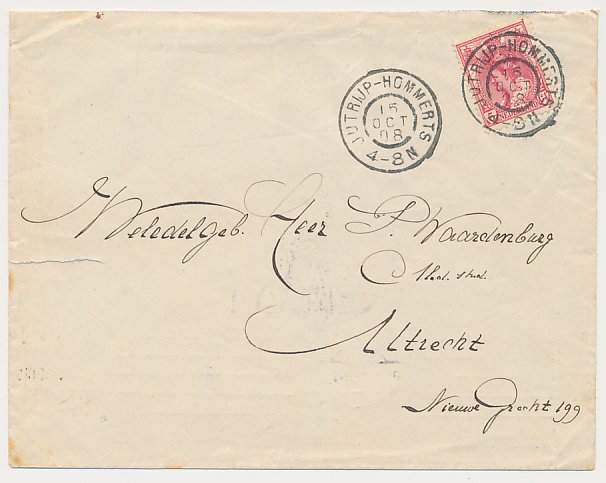 JUTRIJP-HOMMERTS
15
OCT
08
4-8N
JUTRIJP-HOMMERTS
15
OCT
08
4-8N
Weledelgeb. Heer P. Waardenburg
Med. stud.
Utrecht
Nieuwe Gracht 199